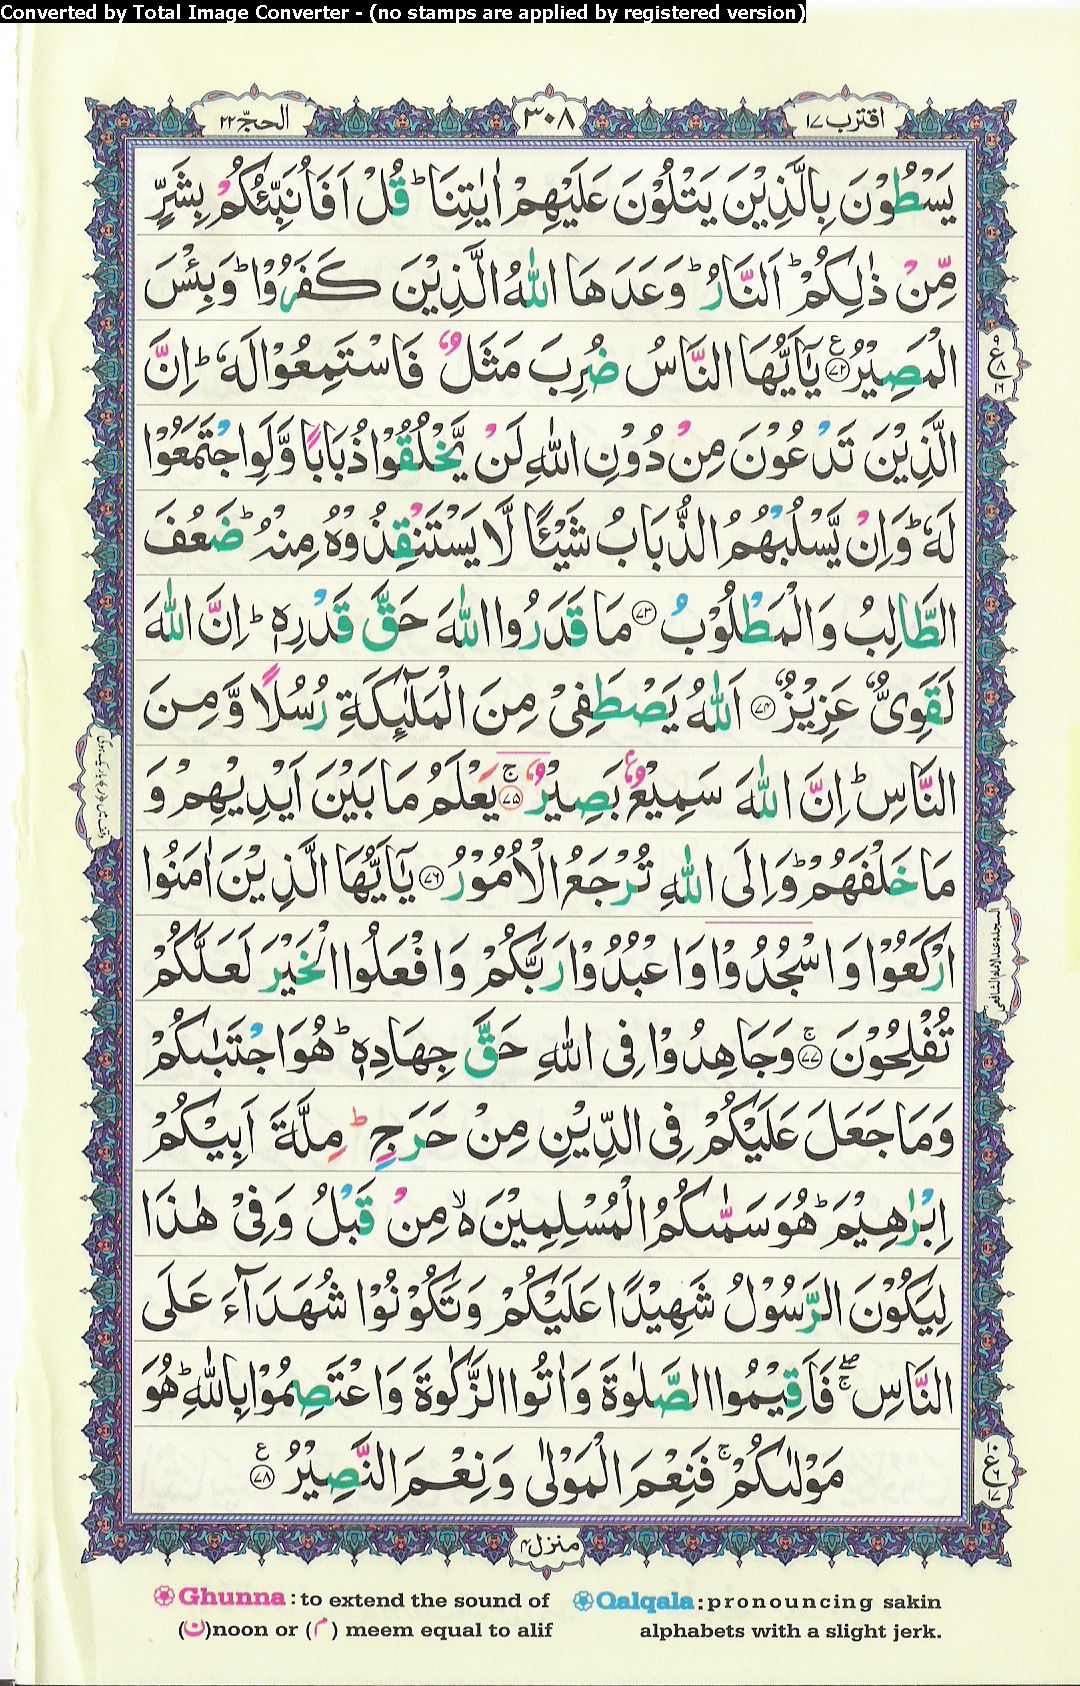 Converted by Total Image Converter - (no stamps are applied by registered version)
اقترب ١٧
٣٠٨
الحجّ ٢٢
يَسْطُوْنَ بِالَّذِيْنَ يَتْلُوْنَ عَلَيْهِمْ اٰيٰتِنَا ؕ قُلْ اَفَاُنَبِّئُكُمْ بِشَرٍّ
مِّنْ ذٰلِكُمْ ؕ اَلنَّارُ ؕ وَعَدَهَا اللّٰهُ الَّذِيْنَ كَفَرُوْا ؕ وَبِئْسَ
الْمَصِيْرُ ﴿٧٢﴾ ع يٰٓاَيُّهَا النَّاسُ ضُرِبَ مَثَلٌ فَاسْتَمِعُوْا لَهٗ ؕ اِنَّ
الَّذِيْنَ تَدْعُوْنَ مِنْ دُوْنِ اللّٰهِ لَنْ يَّخْلُقُوْا ذُبَابًا وَّلَوِ اجْتَمَعُوْا
لَهٗ ؕ وَاِنْ يَّسْلُبْهُمُ الذُّبَابُ شَيْـًٔا لَّا يَسْتَنْقِذُوْهُ مِنْهُ ؕ ضَعُفَ
الطَّالِبُ وَالْمَطْلُوْبُ ﴿٧٣﴾ مَا قَدَرُوا اللّٰهَ حَقَّ قَدْرِهٖ ؕ اِنَّ اللّٰهَ
لَقَوِيٌّ عَزِيْزٌ ﴿٧٤﴾ اَللّٰهُ يَصْطَفِيْ مِنَ الْمَلٰٓئِكَةِ رُسُلًا وَّمِنَ
النَّاسِ ؕ اِنَّ اللّٰهَ سَمِيْعٌۢ بَصِيْرٌ ﴿٧٥﴾ ج يَعْلَمُ مَا بَيْنَ اَيْدِيْهِمْ وَ
مَا خَلْفَهُمْ ؕ وَاِلَى اللّٰهِ تُرْجَعُ الْاُمُوْرُ ﴿٧٦﴾ يٰٓاَيُّهَا الَّذِيْنَ اٰمَنُوا
ارْكَعُوْا وَاسْجُدُوْا وَاعْبُدُوْا رَبَّكُمْ وَافْعَلُوا الْخَيْرَ لَعَلَّكُمْ
تُفْلِحُوْنَ ﴿٧٧﴾ ۚ وَجَاهِدُوْا فِي اللّٰهِ حَقَّ جِهَادِهٖ ؕ هُوَ اجْتَبٰىكُمْ
وَمَا جَعَلَ عَلَيْكُمْ فِي الدِّيْنِ مِنْ حَرَجٍ ؕ مِلَّةَ اَبِيْكُمْ
اِبْرٰهِيْمَ ؕ هُوَ سَمّٰىكُمُ الْمُسْلِمِيْنَ ۙ مِنْ قَبْلُ وَفِيْ هٰذَا
لِيَكُوْنَ الرَّسُوْلُ شَهِيْدًا عَلَيْكُمْ وَتَكُوْنُوْا شُهَدَآءَ عَلَى
النَّاسِ ۖۚ فَاَقِيْمُوا الصَّلٰوةَ وَاٰتُوا الزَّكٰوةَ وَاعْتَصِمُوْا بِاللّٰهِ ؕ هُوَ
مَوْلٰىكُمْ ۚ فَنِعْمَ الْمَوْلٰى وَنِعْمَ النَّصِيْرُ ﴿٧٨﴾ ع
منزل ٤
Ghunna : to extend the sound of (ن)noon or (م) meem equal to alif
Qalqala : pronouncing sakin alphabets with a slight jerk.